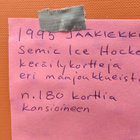 1995 JÄÄKIEKKO
Semic Ice Hocke
keräilykortteja
eri maajoukkueista
n. 180 korttia
kansioineen